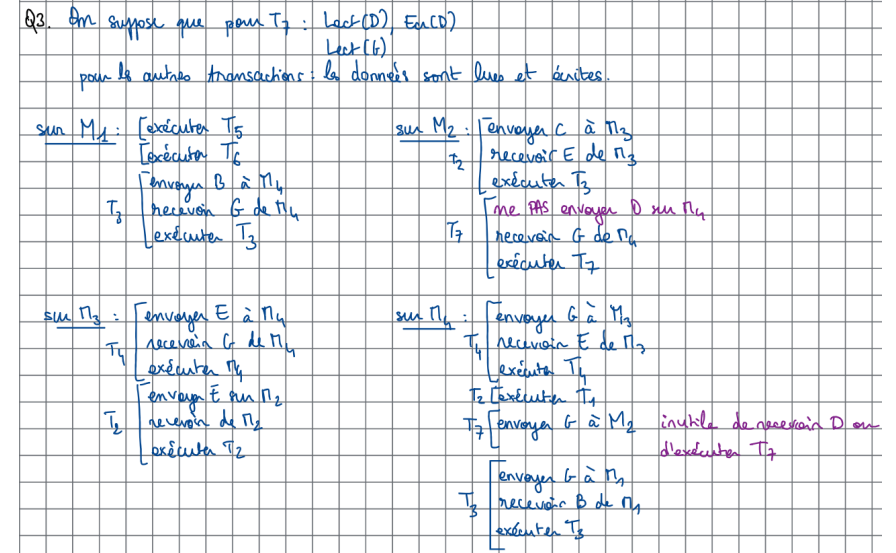 Q3. On suppose que pour T7 : Lect(D), Ecr(D)
Lect(G)
pour les autres transactions : les données sont lues et écrites.
sur M1 : [exécuter T5
[exécuter T6
T3 [envoyer B à M4
recevoir G de M4
exécuter T3
sur M2 : T2 [envoyer C à M3
recevoir E de M3
exécuter T3
T7 [ne PAS envoyer D sur M4
recevoir G de M4
exécuter T7
sur M3 : T4 [envoyer E à M4
recevoir G de M4
exécuter M4
T2 [envoyer E sur M2
recevoir de M2
exécuter T2
sur M4 : T4 [envoyer G à M3
recevoir E de M3
exécuter T4
T2 [exécuter T1
T7 [envoyer G à M2 inutile de recevoir D ou
d'exécuter T7
T3 [envoyer G à M1
recevoir B de M1
exécuter T3